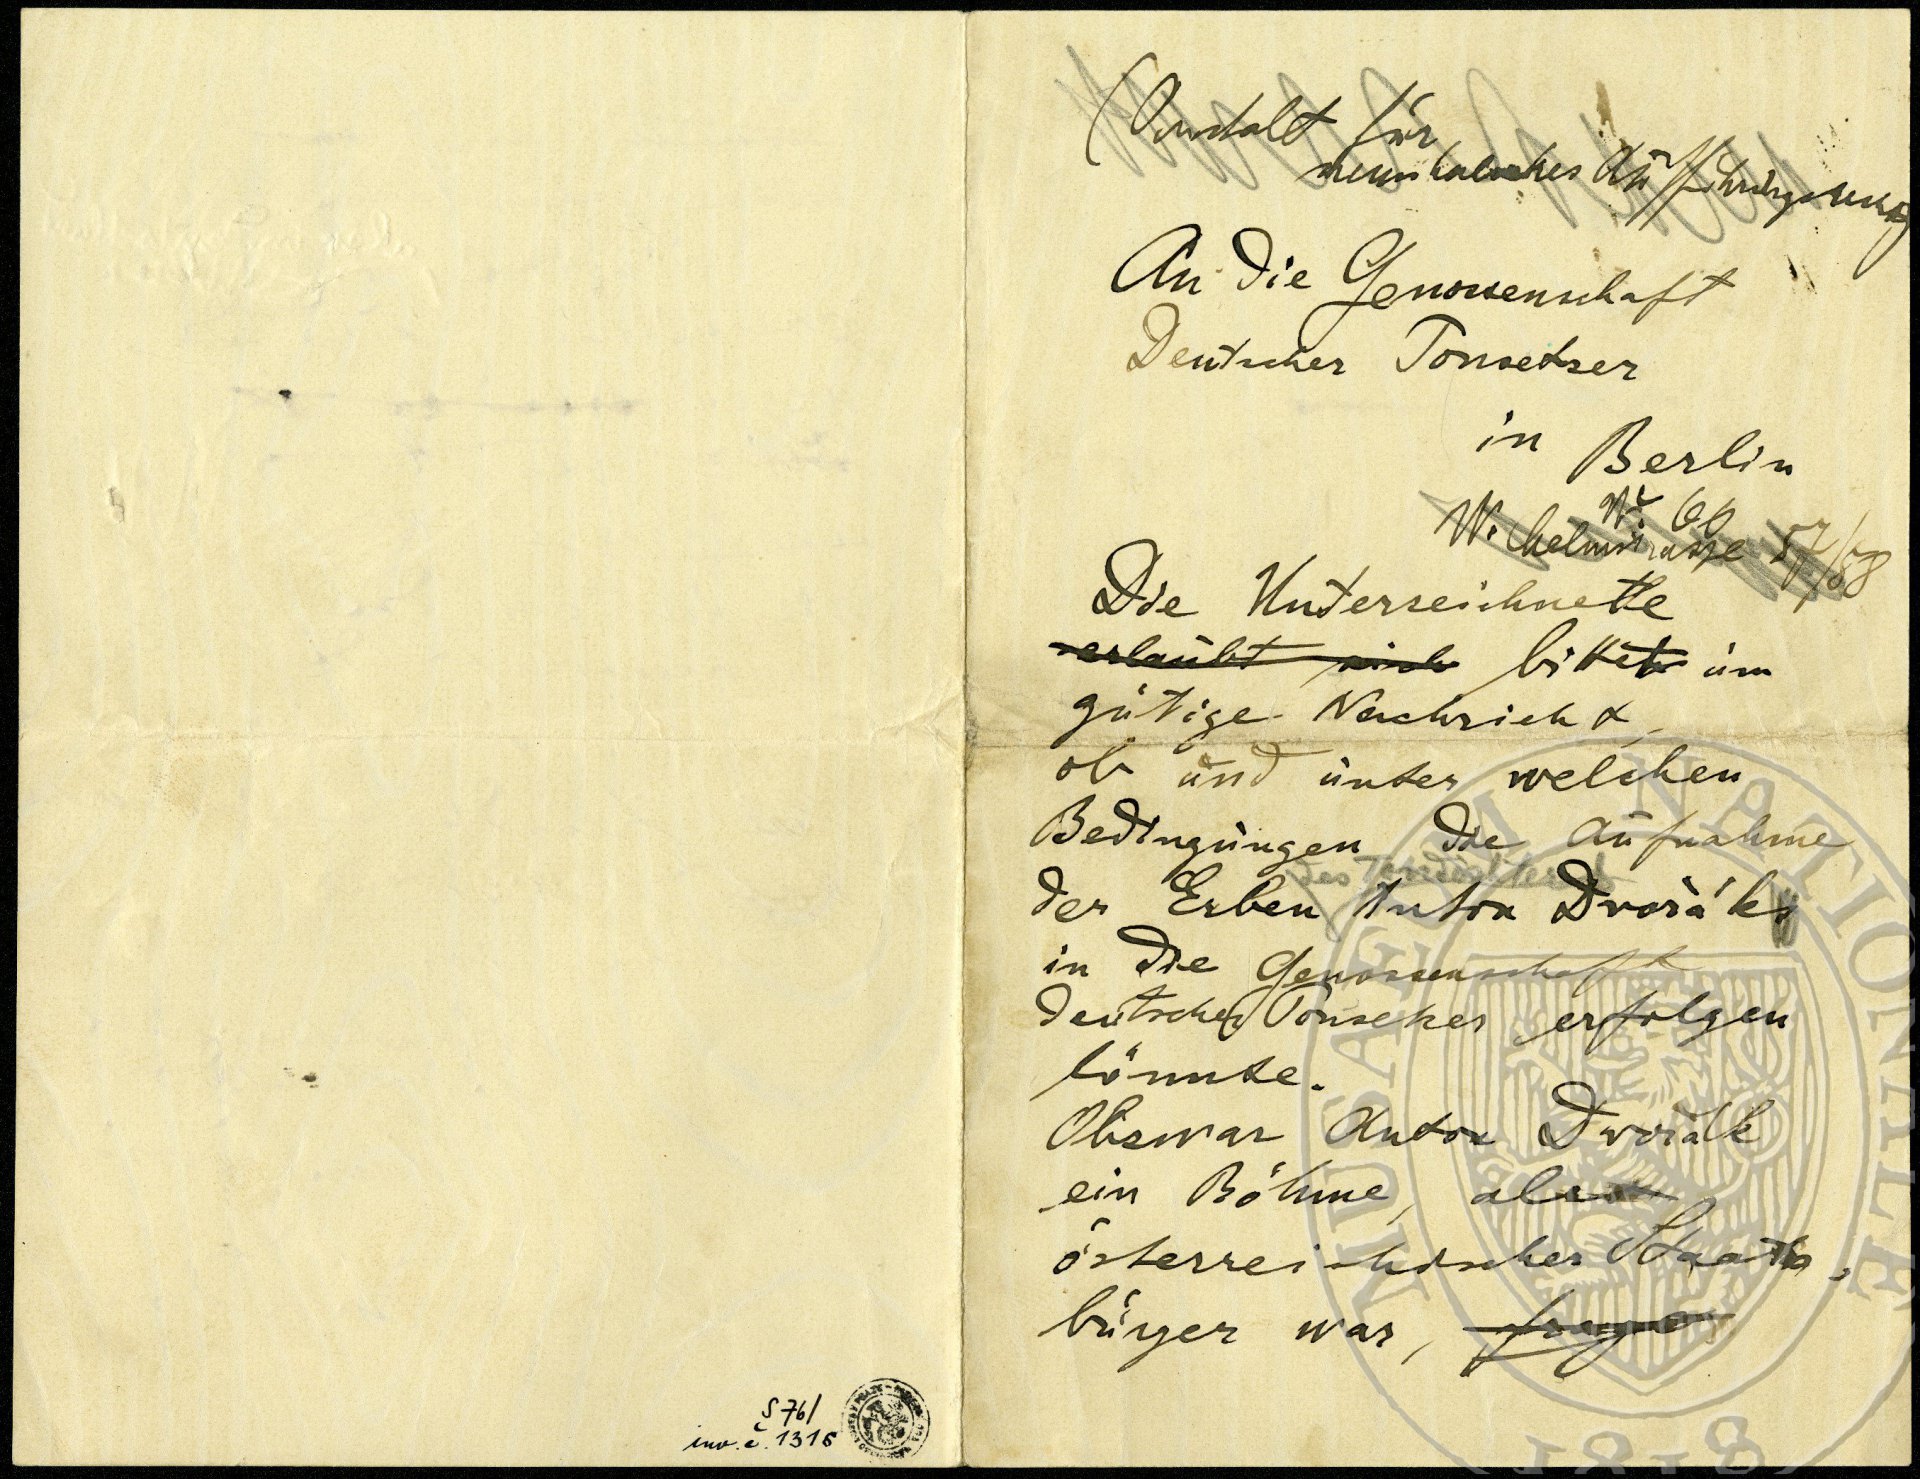 S 76/
inv. č. 1316
(Anstalt für
musikalisches Aufführungsrecht)
An die Genossenschaft
Deutscher Tonsetzer
in Berlin
W. 66
Wilhelmstrasse 57/58
Die Unterzeichnette
erlaubt sich bittet um
gütige Nachricht,
ob und unter welchen
Bedingungen die Aufnahme
der Erben Anton Dvořáks
in die Genossenschaft
deutscher Tonsetzer erfolgen
könnte.
Obzwar Anton Dvořák
ein Böhme, also
österreichischer Staats-
bürger war, frage
MUSAEUM NATIONALE
1818